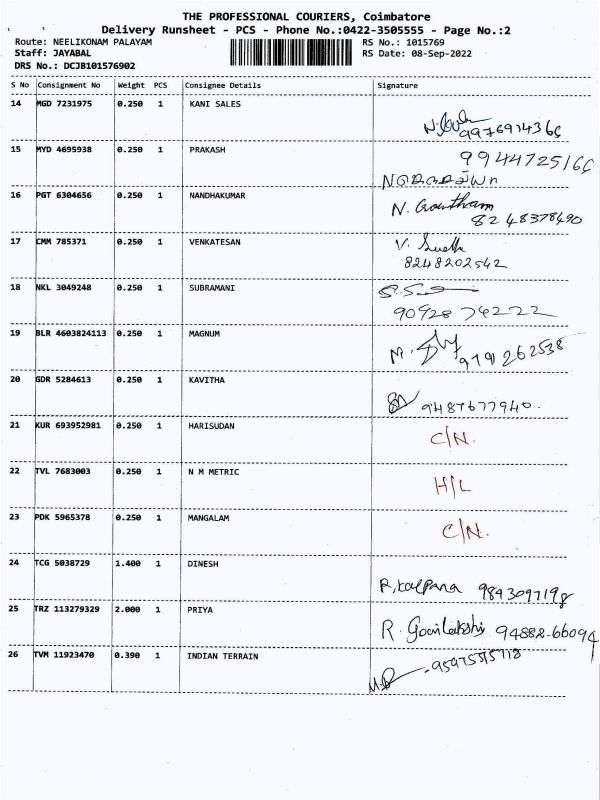 THE PROFESSIONAL COURIERS, Coimbatore
Delivery Runsheet - PCS - Phone No.:0422-3505555 - Page No.:2
Route: NEELIKONAM PALAYAM RS No.: 1015769
Staff: JAYABAL RS Date: 08-Sep-2022
DRS No.: DCJB101576902
S No Consignment No Weight PCS Consignee Details Signature
14 MGD 7231975 0.250 1 KANI SALES
9976914366
15 MYD 4695938 0.250 1 PRAKASH
9944725166
16 PGT 6304656 0.250 1 NANDHAKUMAR
N. Gowtham
8248378490
17 CMM 785371 0.250 1 VENKATESAN
V.
8248202542
18 NKL 3049248 0.250 1 SUBRAMANI
90928 74222
19 BLR 4603824113 0.250 1 MAGNUM
M. 9791262538
20 GDR 5284613 0.250 1 KAVITHA
9487677940.
21 KUR 693952981 0.250 1 HARISUDAN
C/N.
22 TVL 7683003 0.250 1 N M METRIC
H/L
23 PDK 5965378 0.250 1 MANGALAM
C/N.
24 TCG 5038729 1.400 1 DINESH
R. Kalpana 9843097198
25 TRZ 113279329 2.000 1 PRIYA
R. Gowilakshi 94882-66094
26 TVM 11923470 0.390 1 INDIAN TERRAIN